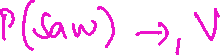 P(saw) →, V